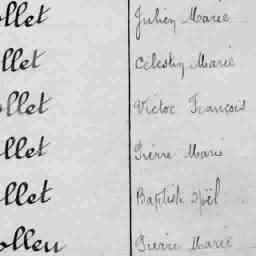 ollet Julien Marie
llet Célestin Marie
ollet Victor François
llet Pierre Marie
llet Baptiste Noël
ollen Pierre Marie